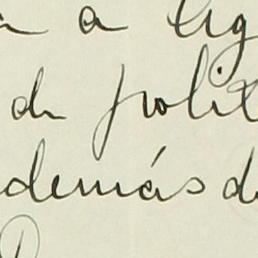 a lig
de polit
demás d